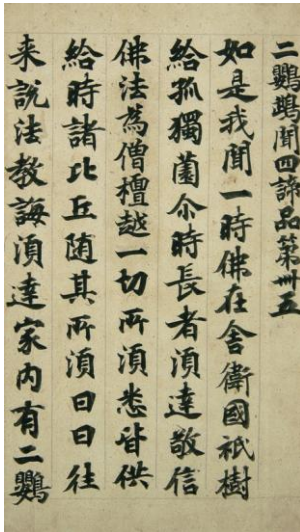 二鸚鵡聞四諦品第卌五
如是我聞一時佛在舍衛國祇樹
給孤獨薗尒時長者湏達敬信
佛法為僧檀越一切所湏悉皆供
給時諸比丘随其所湏日日往
来説法教誨湏達家内有二鸚